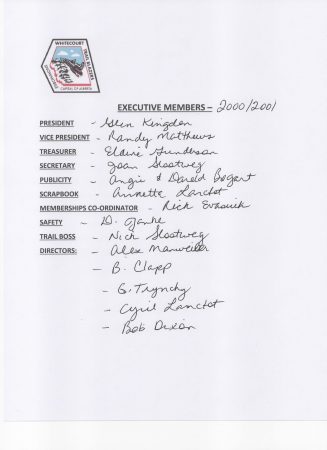 WHITECOURT
TRAIL BLAZERS
SNOWMOBILE
CAPITAL OF ALBERTA
EXECUTIVE MEMBERS – 2000/2001
PRESIDENT - Glen Kingdon
VICE PRESIDENT - Randy Matthews
TREASURER - Elaine Gunderson
SECRETARY - Joan Slootweg
PUBLICITY - Angie & Darold Bogart
SCRAPBOOK - Annette Lanctot
MEMBERSHIPS CO-ORDINATOR - Rick
SAFETY - D. Janke
TRAIL BOSS - Nick Slootweg
DIRECTORS: - Alex Manweiler
- B. Clapp
- G. Trynchy
- Cyril Lanctot
- Bob Dixon